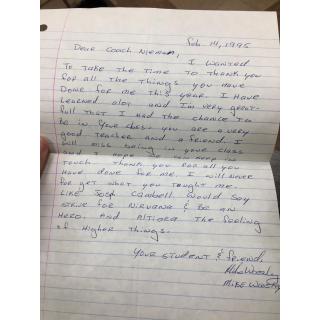 Feb 14, 1995
Dear Coach Nieman,
I wanted
To take the time to thank you
for all the things you have
Done for me this year. I have
Learned alot and I'm very great-
full that I had the chance to
be in your class. you are a very
good teacher and a friend. I
will miss being in your class
and I hope we keep in
touch. Thank you for all you
have done for me. I will never
for get what you taught me.
Like Josh Cambell would say
strive for Nirvana & Be an
Hero. And Altiora the feeling
of Higher Things.
Your Student & friend,
Mike
Mike